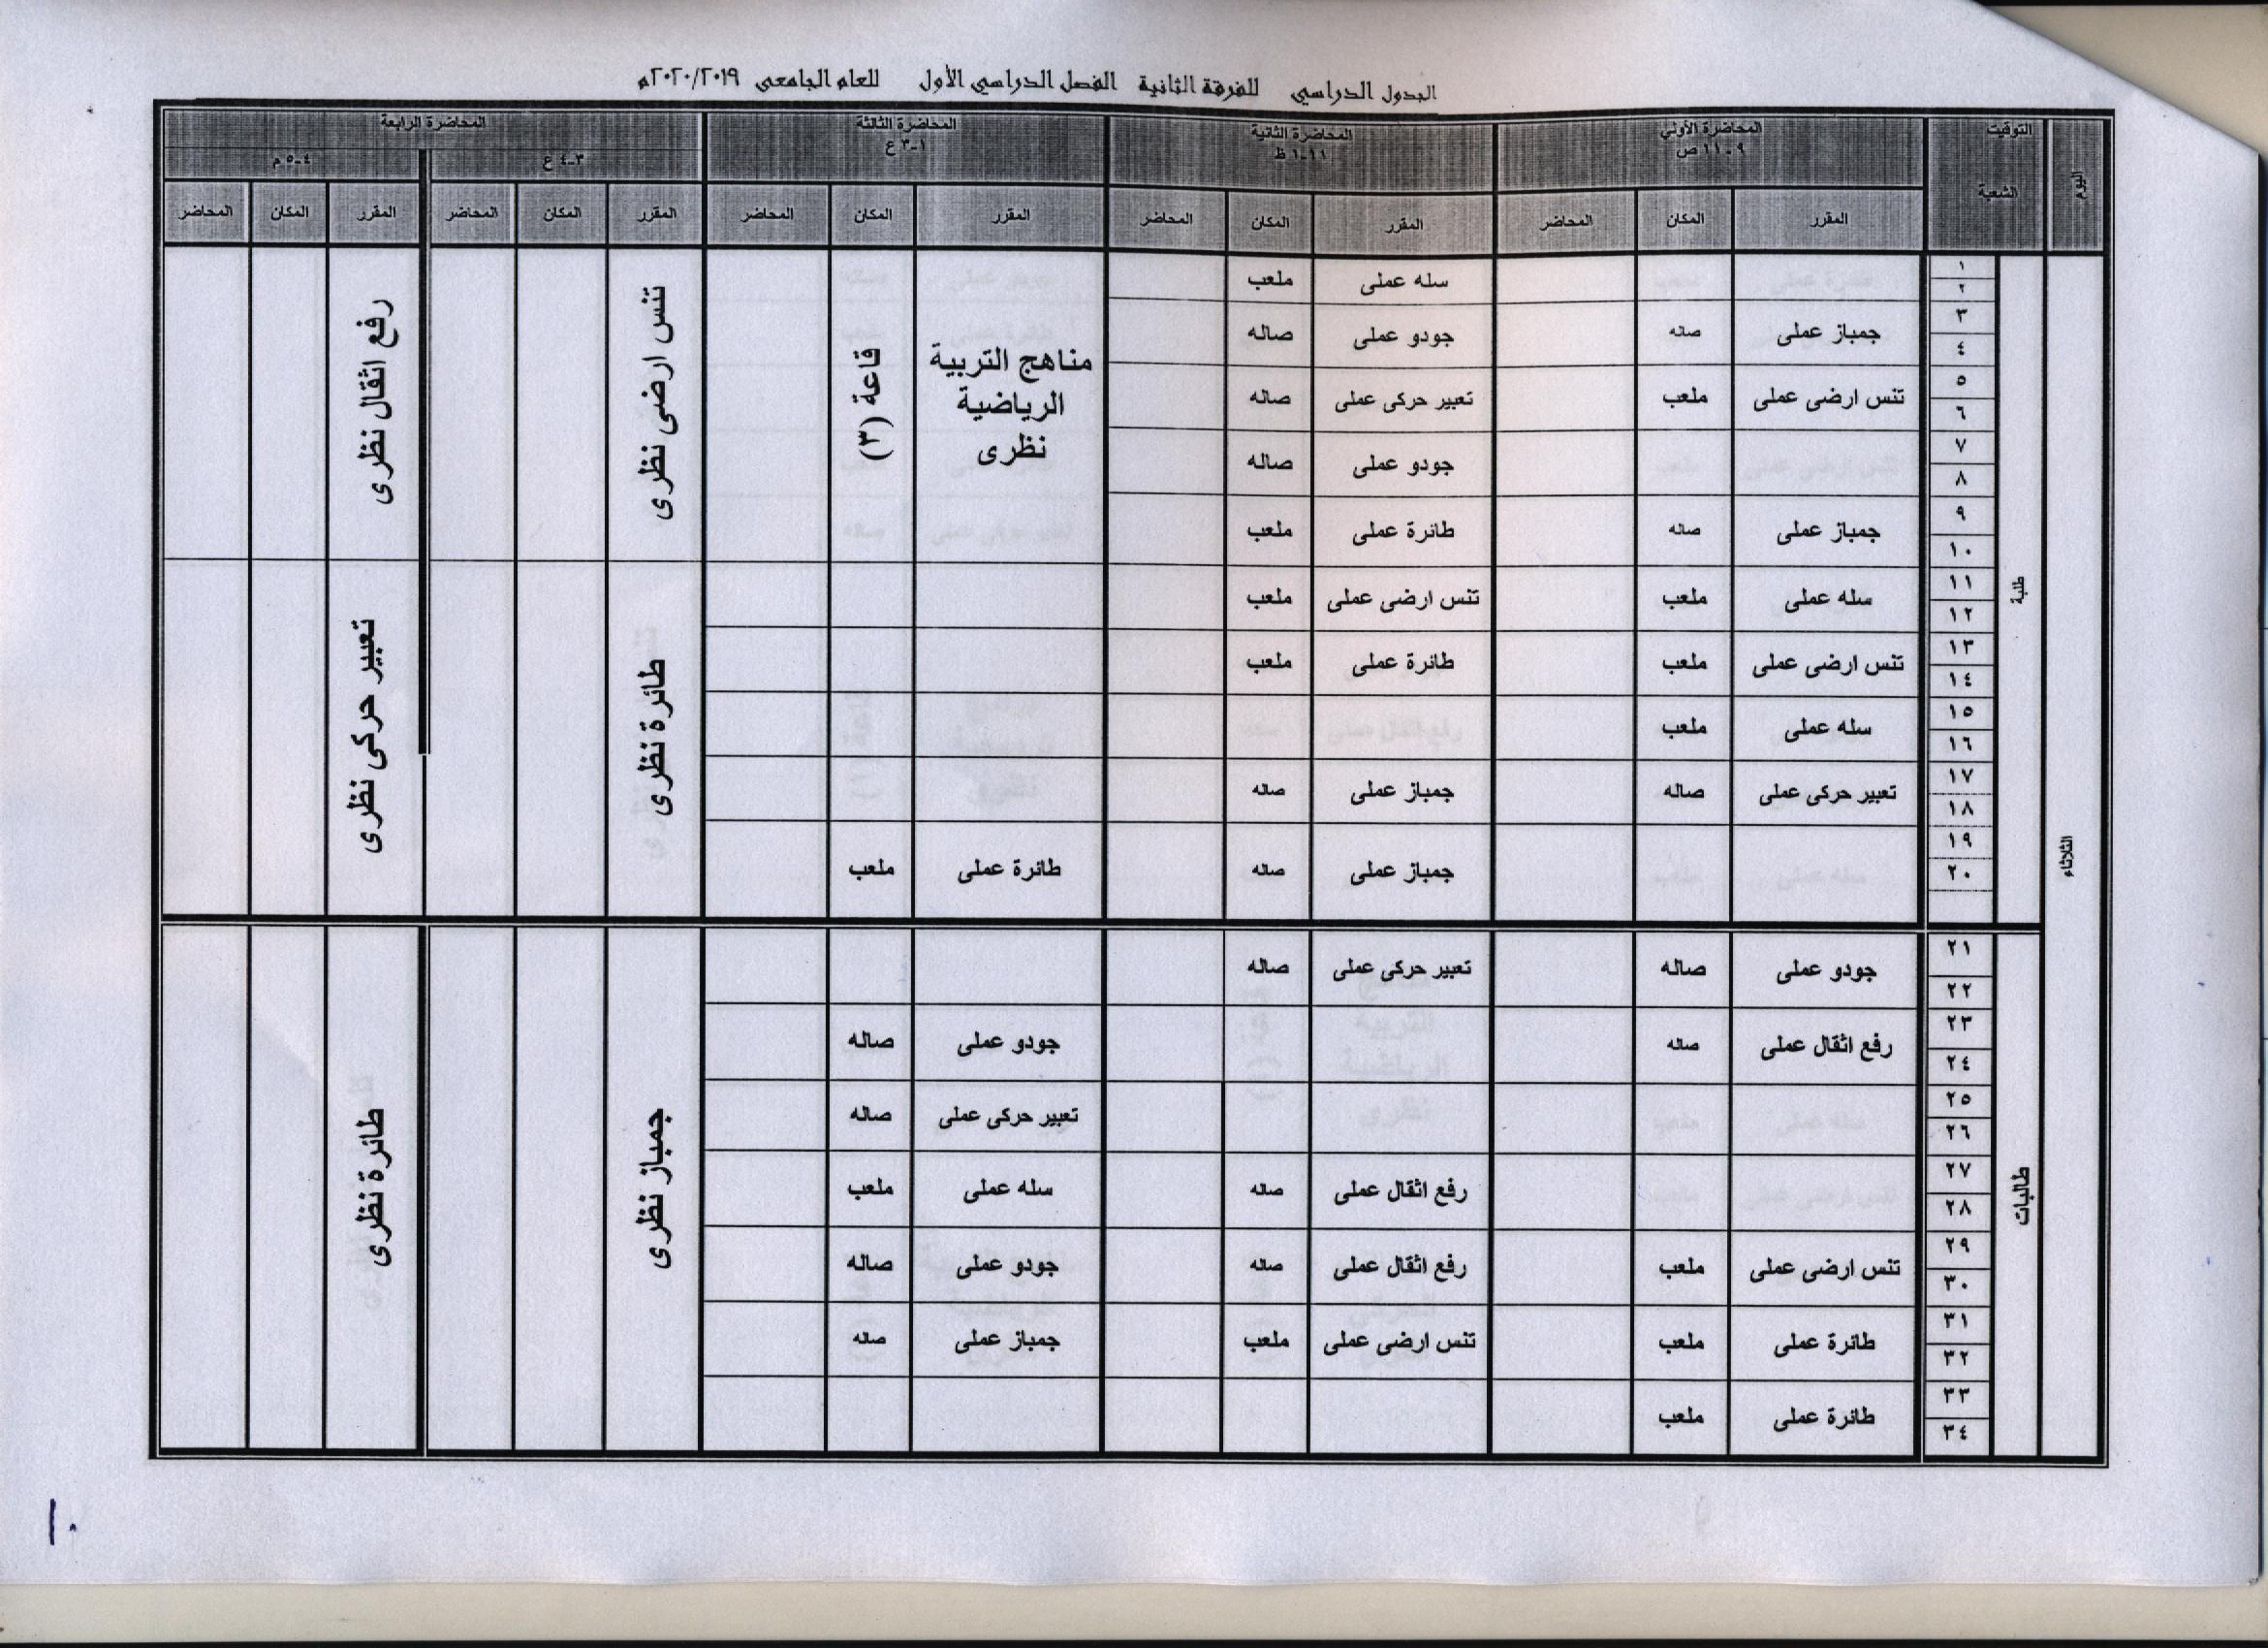 الجدول الدراسي للفرقة الثانية الفصل الدراسي الأول للعام الجامعى ٢٠٢٠/٢٠١٩م
اليوم التوقيت المحاضرة الأولي المحاضرة الثانية المحاضرة الثالثة المحاضرة الرابعة
الشعبة ٩ - ١١ ص ١١-١ ظ ١-٣ ع ٣-٤ ع ٤-٥ م
المقرر المكان المحاضر المقرر المكان المحاضر المقرر المكان المحاضر المقرر المكان المحاضر المقرر المكان المحاضر
الثلاثاء
طلبة
١ ٢ سله عملى ملعب
٣ ٤ جمباز عملى صاله جودو عملى صاله
٥ ٦ تنس ارضى عملى ملعب تعبير حركى عملى صاله
٧ ٨ جودو عملى صاله
٩ ١٠ جمباز عملى صاله طائرة عملى ملعب
مناهج التربية
الرياضية
نظرى
قاعة (٣)
تنس ارضى نظرى
رفع اثقال نظرى
١١ ١٢ سله عملى ملعب تنس ارضى عملى ملعب
١٣ ١٤ تنس ارضى عملى ملعب طائرة عملى ملعب
١٥ ١٦ سله عملى ملعب
١٧ ١٨ تعبير حركى عملى صاله جمباز عملى صاله
١٩ ٢٠ جمباز عملى صاله طائرة عملى ملعب
طائرة نظرى
تعبير حركى نظرى
طالبات
٢١ ٢٢ جودو عملى صاله تعبير حركى عملى صاله
٢٣ ٢٤ رفع اثقال عملى صاله جودو عملى صاله
٢٥ ٢٦ تعبير حركى عملى صاله
٢٧ ٢٨ رفع اثقال عملى صاله سله عملى ملعب
٢٩ ٣٠ تنس ارضى عملى ملعب رفع اثقال عملى صاله جودو عملى صاله
٣١ ٣٢ طائرة عملى ملعب تنس ارضى عملى ملعب جمباز عملى صاله
٣٣ ٣٤ طائرة عملى ملعب
جمباز نظرى
طائرة نظرى
١٠